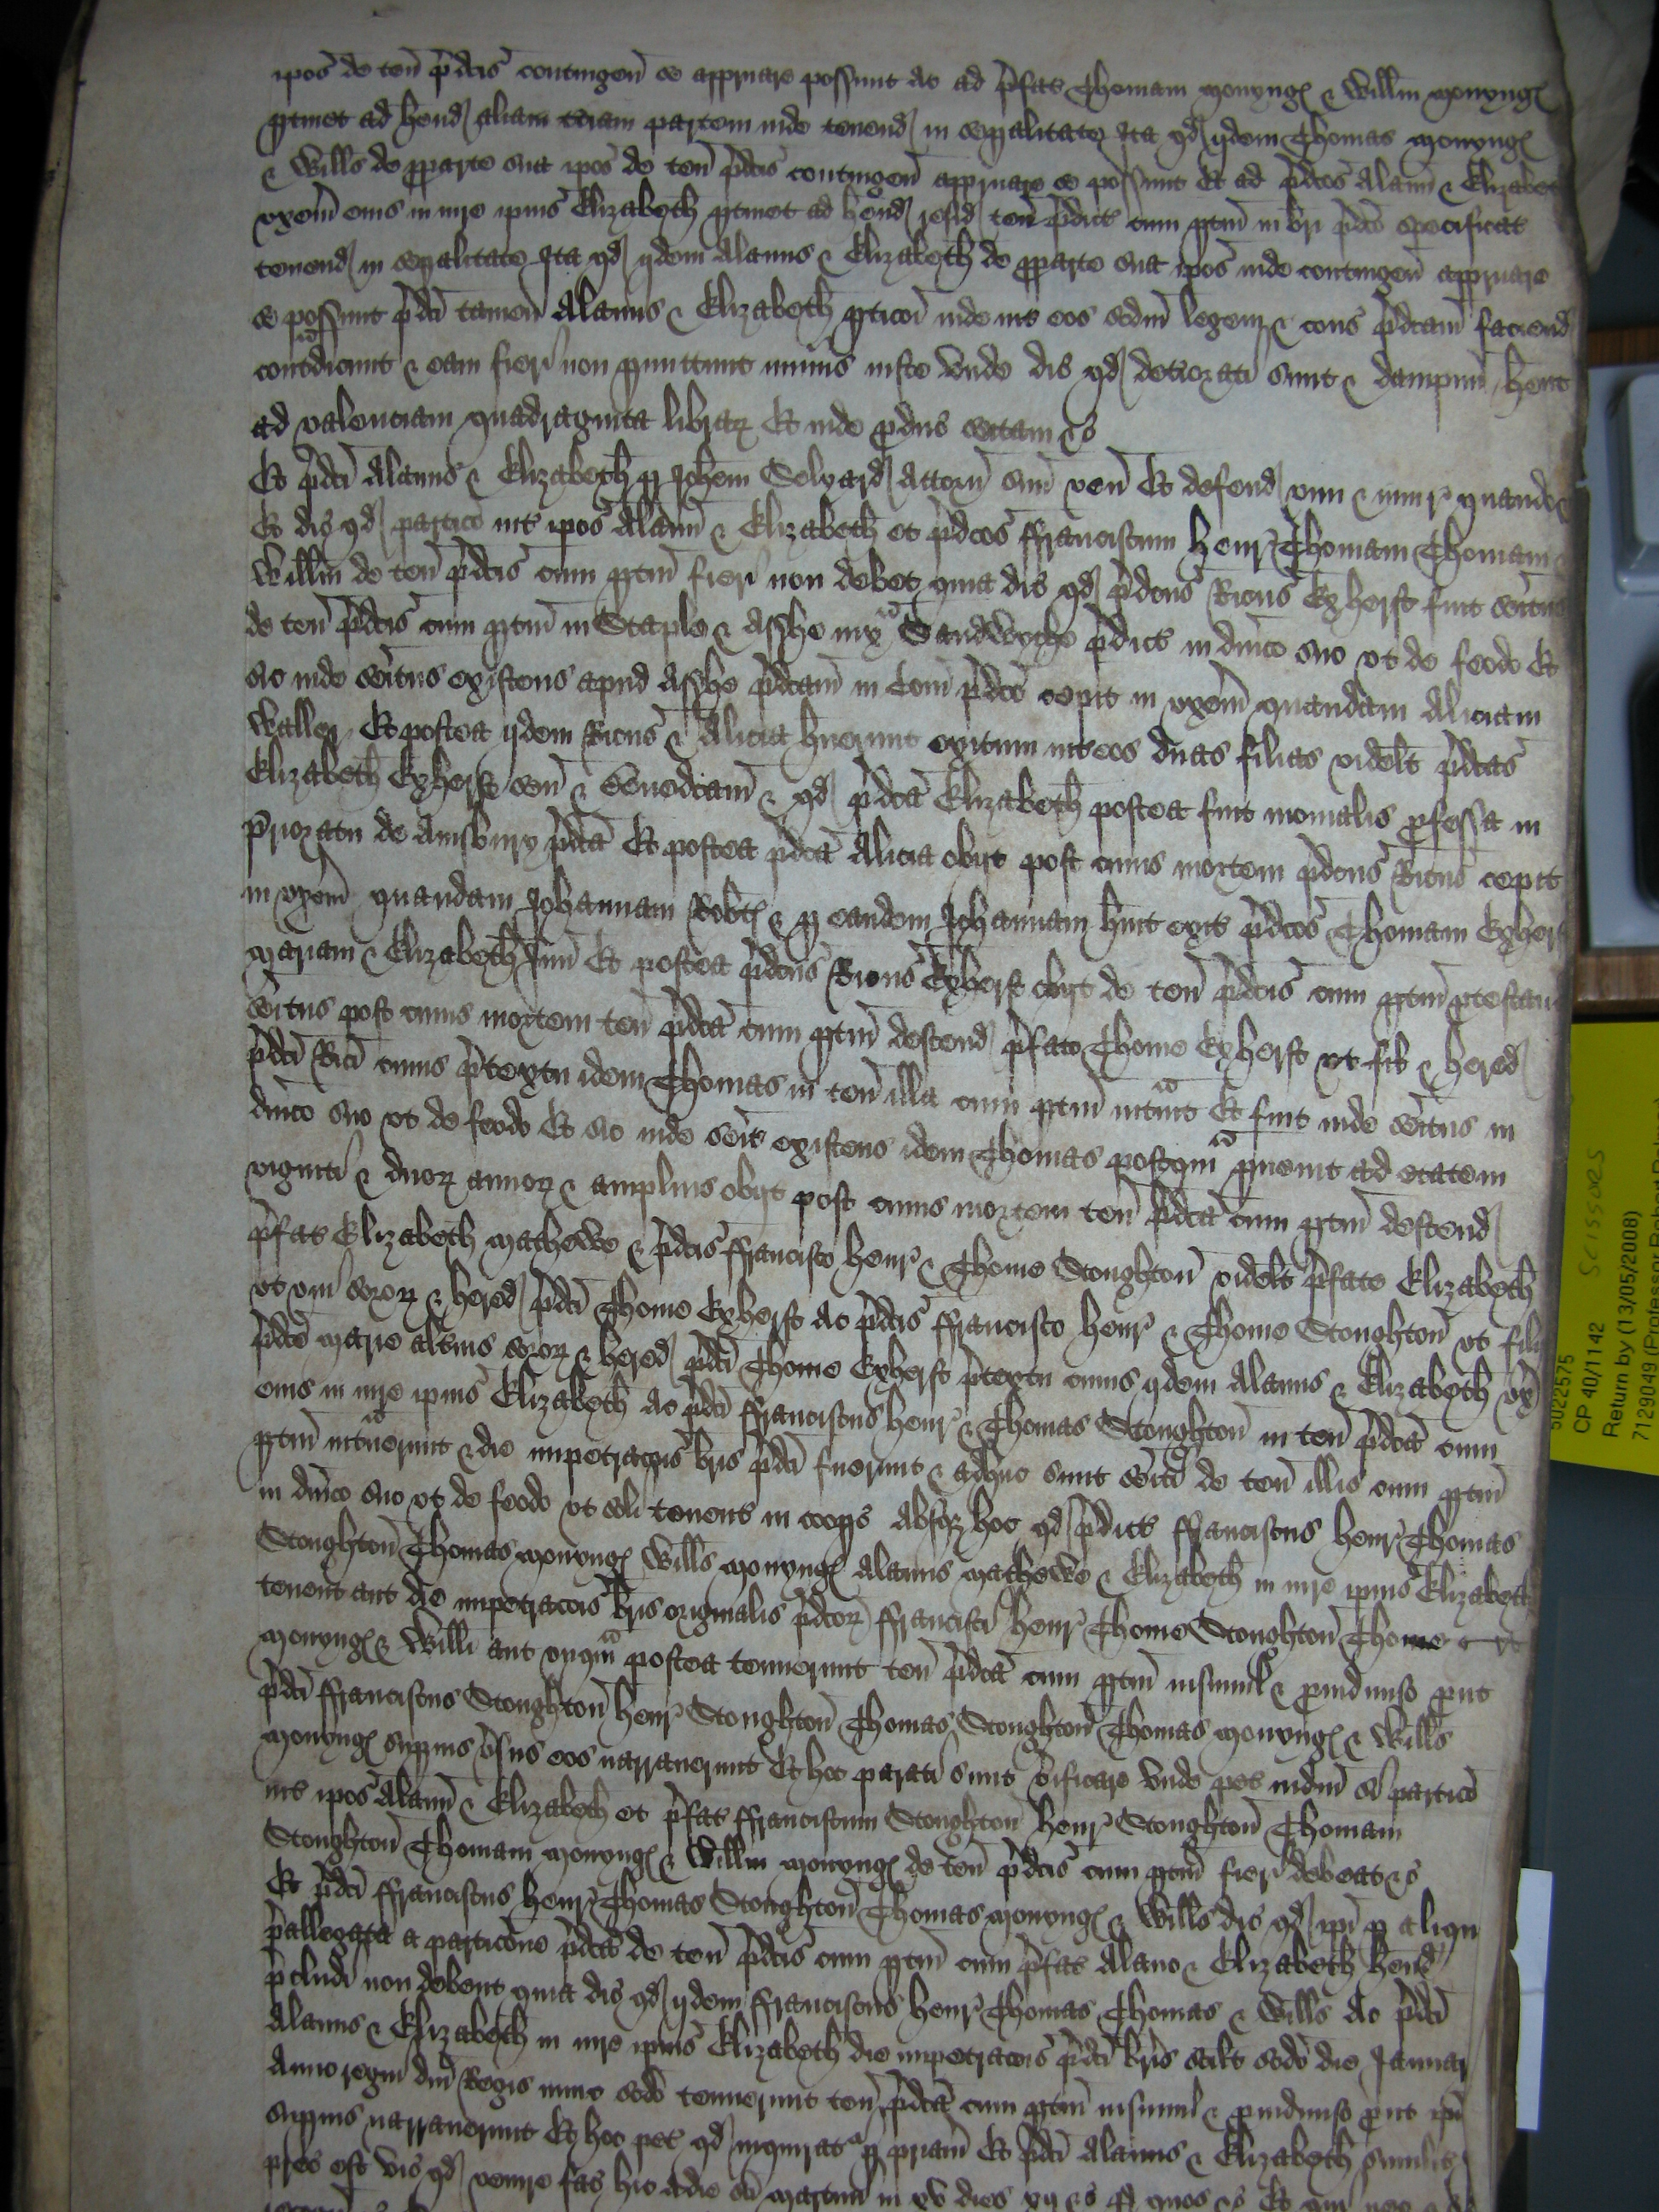 ipos de ten p̄dcis contingen̄ se appruare possunt Ac ad p̄fat Thomam Monyng & Willm Monyng
ptinet ad hend aliam terciam partem inde tenend in sepalitate Ita qd ijdem Thomas Monyng
& Wills de pparte sua ipos de ten̄ p̄dcis contingen̄ appruare se possint Et ad p̄dcos Alanū & Elizabeth
vxem eius in iure ipius Elizabeth ptinet ad hend resid ten̄ p̄dict cum ptin̄ in bri p̄dco specificat
tenend in sepalitate Ita qd ijdem Alanus & Elizabeth de pparte sua ipos inde contingen̄ appruare
se possunt p̄dci tamen Alanus & Elizabeth pticoī inde int eos scdm legem & cons p̄dcam faciend
contradicunt & eam fieri non pmittunt minus iuste vnde dic qd deteriorati sunt & dampnū hent
ad valenciam quadraginta librar Et inde pducunt sectam &c
Et p̄dci Alanus & Elizabeth p Johem Selyard Attorn̄ suū ven̄ Et defend vim & iniur quando &c
Et dic qd particio int ipos Alanū & Elizabeth et p̄dcos ffranciscum Henr Thomam Thomam &
Willm de ten̄ p̄dcis cum ptin̄ fieri non debet quia dic qd p̄dcus Ricus Exherst fuit seitus
de ten̄ p̄dcis cum ptin̄ in Staple & Asshe iuxa Sandwyche p̄dict in dnico suo vt de feodo Et
sic inde seitus existens apud Asshe p̄dcam in Com p̄dco cepit in vxem quandam Aliciam
Waller Et postea ijdem Ricus & Alicia huerunt exitum int eos duas filias videlt p̄dcas
Elizabeth Exherst sen̄ & Benedcam & qd p̄dca Elizabeth postea fuit monialis pfessa in
Prioratu de Amsbury p̄dca Et postea p̄dca Alicia obijt post cuius mortem p̄dcus Ricus cepit
in vxem quandam Johannam Robt & p eandem Johannam huit exit p̄dcos Thomam Exherst
Mariam & Elizabeth Jun̄ Et postea p̄dcus Ricus Exherst obijt de ten̄ p̄dcis cum ptin̄
seitus post cuius mortem ten̄ p̄dca cum ptin̄ descend p̄fato Thome Exherst vt fil & hered
p̄dci Rici cuius p̄textu idem Thomas in ten̄ illa cum ptin̄ intrauit Et fuit inde seitus in
dnico suo vt de feodo Et sic inde seit existens idem Thomas postqm puenit ad etatem
viginti & duor annor & amplius obijt post cuius mortem ten̄ p̄dca cum ptin̄ descend
p̄fat Elizabeth Mathewe & p̄dcis ffrancisco Henr & Thome Stoughton videlt p̄fate Elizabeth
vt vni soror & hered p̄dci Thome Exherst Ac p̄dcis ffrancisco Henr & Thome Stoughton vt fili
p̄dce Marie altius soror & hered p̄dci Thome Exherst p̄textu cuius ijdem Alanus & Elizabeth vx
eius in iure ipius Elizabeth Ac p̄dci ffranciscus Henr & Thomas Stoughton in ten̄ p̄dca cum
ptin̄ intrauerunt & die impetracōis bris p̄dci fuerunt & adhuc sunt seiti de ten̄ illis cum ptin̄
in dnico suo vt de feodo vt soli tenent in coopp Absq hoc qd p̄dict ffranciscus Henr Thomas
Stoughton Thomas Monyng Wills Monyng Alanus Mathewe & Elizabeth in iure ipius Elizabeth
tenent aut die impetracōis bris originalis p̄dcor ffrancisci Henr Thome Stoughton Thome
Monyng & Willi aut vnqm postea tenuerunt ten̄ p̄dca cum ptin̄ insimul & p indiuiso put
p̄dci ffranciscus Stoughton Henr Stoughton Thomas Stoughton Thomas Monyng & Wills
Monyng supius vsus eos narrauerunt Et hoc parati sunt vificare vnde pet iudm si particō
int ipos Alanū & Elizabeth et p̄fat ffranciscum Stoughton Henr Stoughton Thomam
Stoughton Thomam Monyng & Willm Monyng de ten̄ p̄dcis cum ptin̄ fieri debeat &c
Et p̄dci ffranciscus Henr Thomas Stoughton Thomas Monyng & Wills dic qd ipi p aliqu
p̄allegata a particōne p̄dca de ten̄ p̄dcis cum ptin̄ cum p̄fat Alano & Elizabeth hend
p̄cludi non debent quia dic qd ijdem ffranciscus Henr Thomas Thomas & Wills Ac p̄dci
Alanus & Elizabeth in iure ipius Elizabeth die impetracōis p̄dci bris scilt scdo die Januar
Anno regni dni Regis nunc scdo tenuerunt ten̄ p̄dca cum ptin̄ insimul & p indiuiso put ipi
supius narrauerunt Et hoc pet qd inquirat p priam Et p̄dci Alanus & Elizabeth similit
prec est vic qd venire fac hic a die sci Martini in xv dies xij &c p quos &c Et qui nec &c
SCISSORS
5022575
CP 40/1142
Return by (13/05/2008)
7129049 (Professor Robert